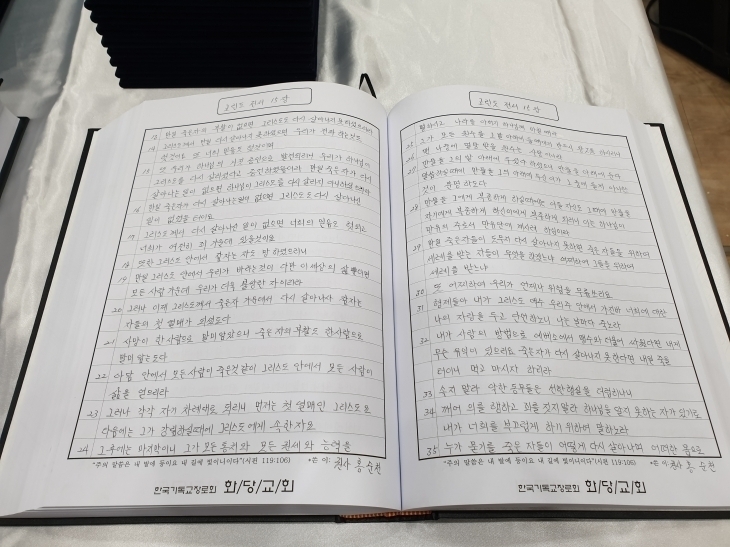 고린도 전서 15장
13 만일 죽은자의 부활이 없으면 그리스도도 다시 살아나지 못하셨으리라
14 그리스도께서 만일 다시 살아나지 못하셨으면 우리가 전파하는것도
헛것이며 또 너희 믿음도 헛것이며
15 또 우리가 하나님의 거짓 증인으로 발견되리니 우리가 하나님이
그리스도를 다시 살리셨다고 증언하였음이라 만일 죽은자가 다시
살아나는일이 없으면 하나님이 그리스도를 다시 살리지 아니하셨으리라
16 만일 죽은자가 다시 살아나는일이 없으면 그리스도도 다시 살아나신
일이 없었을 터이요
17 그리스도께서 다시 살아나신 일이 없으면 너희의 믿음도 헛되고
너희가 여전히 죄 가운데 있을것이요
18 또한 그리스도 안에서 잠자는 자도 망하였으리니
19 만일 그리스도 안에서 우리가 바라는것이 다만 이 세상의 삶뿐이면
모든 사람 가운데 우리가 더욱 불쌍한 자이리라
20 그러나 이제 그리스도께서 죽은자 가운데서 다시 살아나사 잠자는
자들의 첫 열매가 되셨도다
21 사망이 한 사람으로 말미암았으니 죽은자의 부활도 한 사람으로
말미암는도다
22 아담 안에서 모든 사람이 죽은것 같이 그리스도 안에서 모든 사람이
삶을 얻으리라
23 그러나 각각 자기 차례대로 되리니 먼저는 첫 열매인 그리스도요
다음에는 그가 강림하실때에 그리스도에게 속한자요
24 그 후에는 마지막이니 그가 모든 통치와 모든 권세와 능력을
"주의 말씀은 내 발에 등이요 내 길에 빛이니이다"(시편 119:106) *쓴 이: 권사 홍순천
한국기독교장로회 화/당/교/회
고린도 전서 15장
멸하시고 나라를 아버지 하나님께 바칠때라
25 그가 모든 원수를 그 발 아래에 둘때까지 반드시 왕노릇 하시리니
26 맨 나중에 멸망 받을 원수는 사망이니라
27 만물을 그의 발 아래에 두셨다 하셨으니 만물을 아래에 둔다
말씀하실때에 만물을 그의 아래에 두신 이가 그 중에 들지 아니한
것이 분명하도다
28 만물을 그에게 복종하게 하실때에는 아들 자신도 그때에 만물을
자기에게 복종하게 하신이에게 복종하게 되리니 이는 하나님이
만유의 주로서 만유안에 계시려 하심이라
29 만일 죽은자들이 도무지 다시 살아나지 못하면 죽은 자들을 위하여
세례를 받는 자들이 무엇을 하겠느냐 어찌하여 그들을 위하여
세례를 받느냐
30 또 어찌하여 우리가 언제나 위험을 무릅쓰리요
31 형제들아 내가 그리스도 예수 우리주 안에서 가진바 너희에 대한
나의 자랑을 두고 단언하노니 나는 날마다 죽노라
32 내가 사람의 방법으로 에베소에서 맹수와 더불어 싸웠다면 내게
무슨 유익이 있으리요 죽은자가 다시 살아나지 못한다면 내일 죽을
터이니 먹고 마시자 하리라
33 속지 말라 악한 동무들은 선한 행실을 더럽히나니
34 깨어 의를 행하고 죄를 짓지 말라 하나님을 알지 못하는 자가 있기로
내가 너희를 부끄럽게 하기 위하여 말하노라
35 누가 묻기를 죽은 자들이 어떻게 다시 살아나며 어떠한 몸으로
"주의 말씀은 내 발에 등이요 내 길에 빛이니이다"(시편 119:106) *쓴 이: 권사 홍순천
한국기독교장로회 화/당/교/회